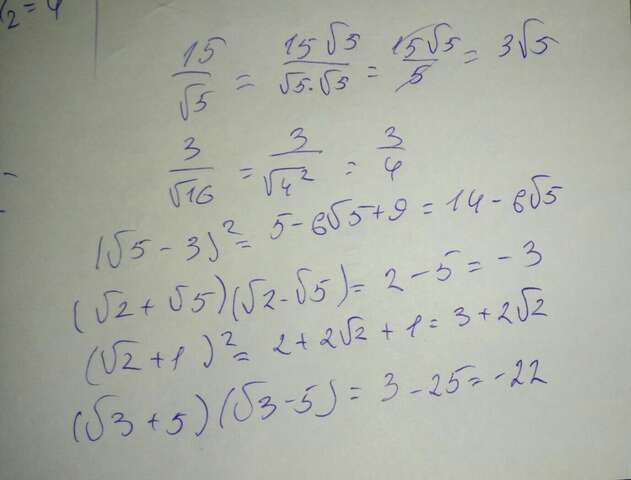 x₂ = 4
15/√5 = 15√5/√5·√5 = 15√5/5 = 3√5
3/√16 = 3/√4² = 3/4
(√5 - 3)² = 5 - 6√5 + 9 = 14 - 6√5
(√2 + √5)(√2 - √5) = 2 - 5 = -3
(√2 + 1)² = 2 + 2√2 + 1 = 3 + 2√2
(√3 + 5)(√3 - 5) = 3 - 25 = -22